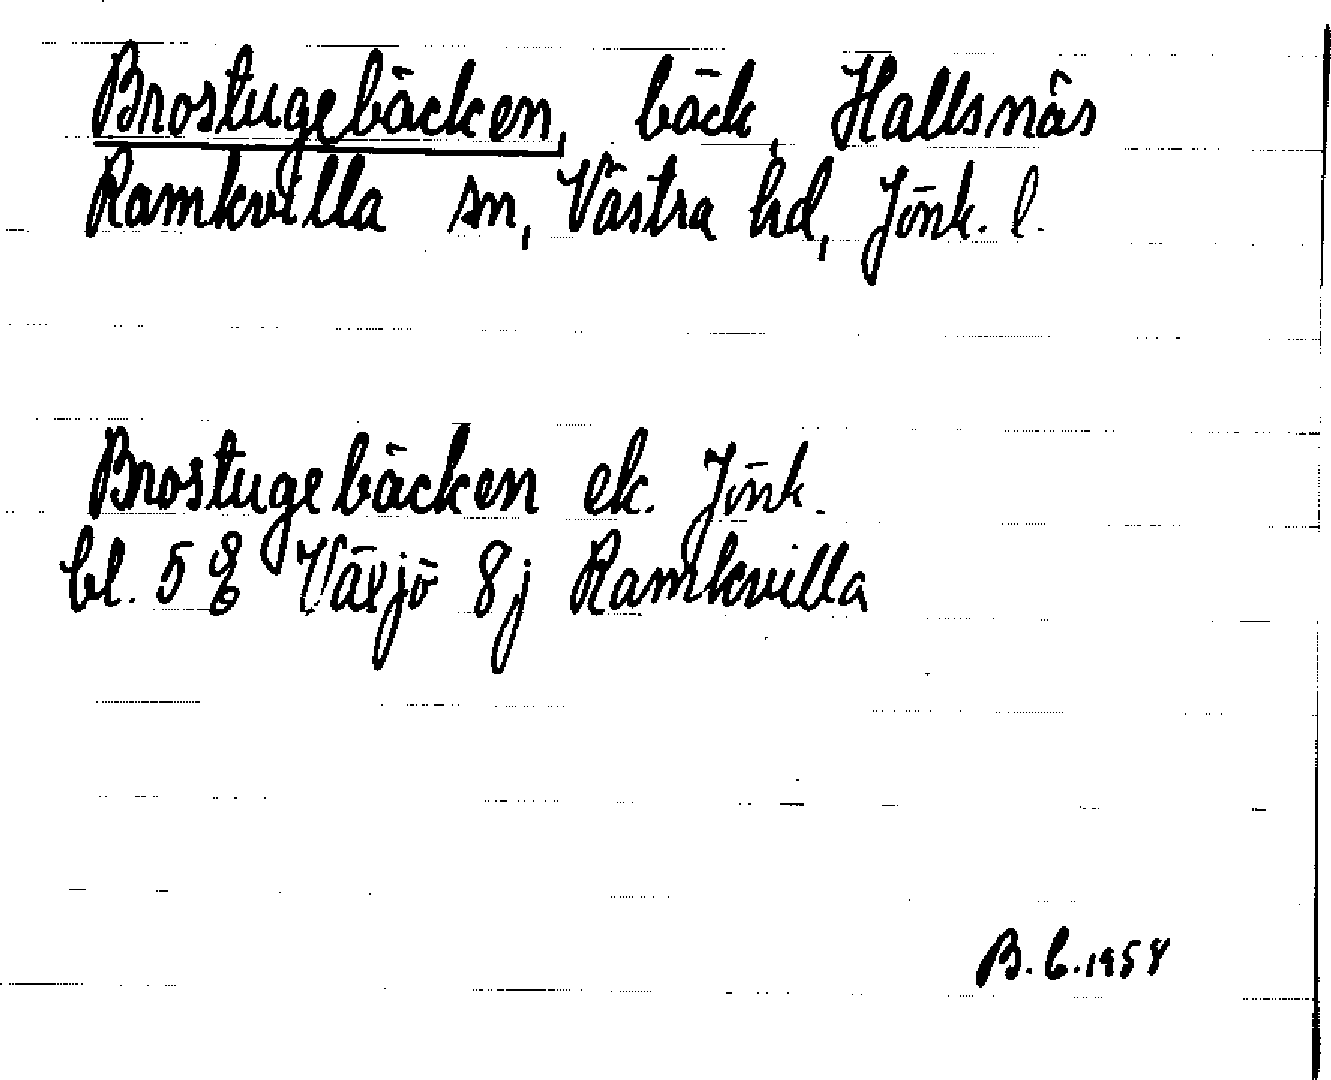 Brostugebäcken, bäck, Hallsnäs
Ramkvilla sn, Västra hd, Jönk. l.
Brostugebäcken ek. Jönk.
bl. 5 8 Växjö 8j Ramkvilla
B. 6. 1958